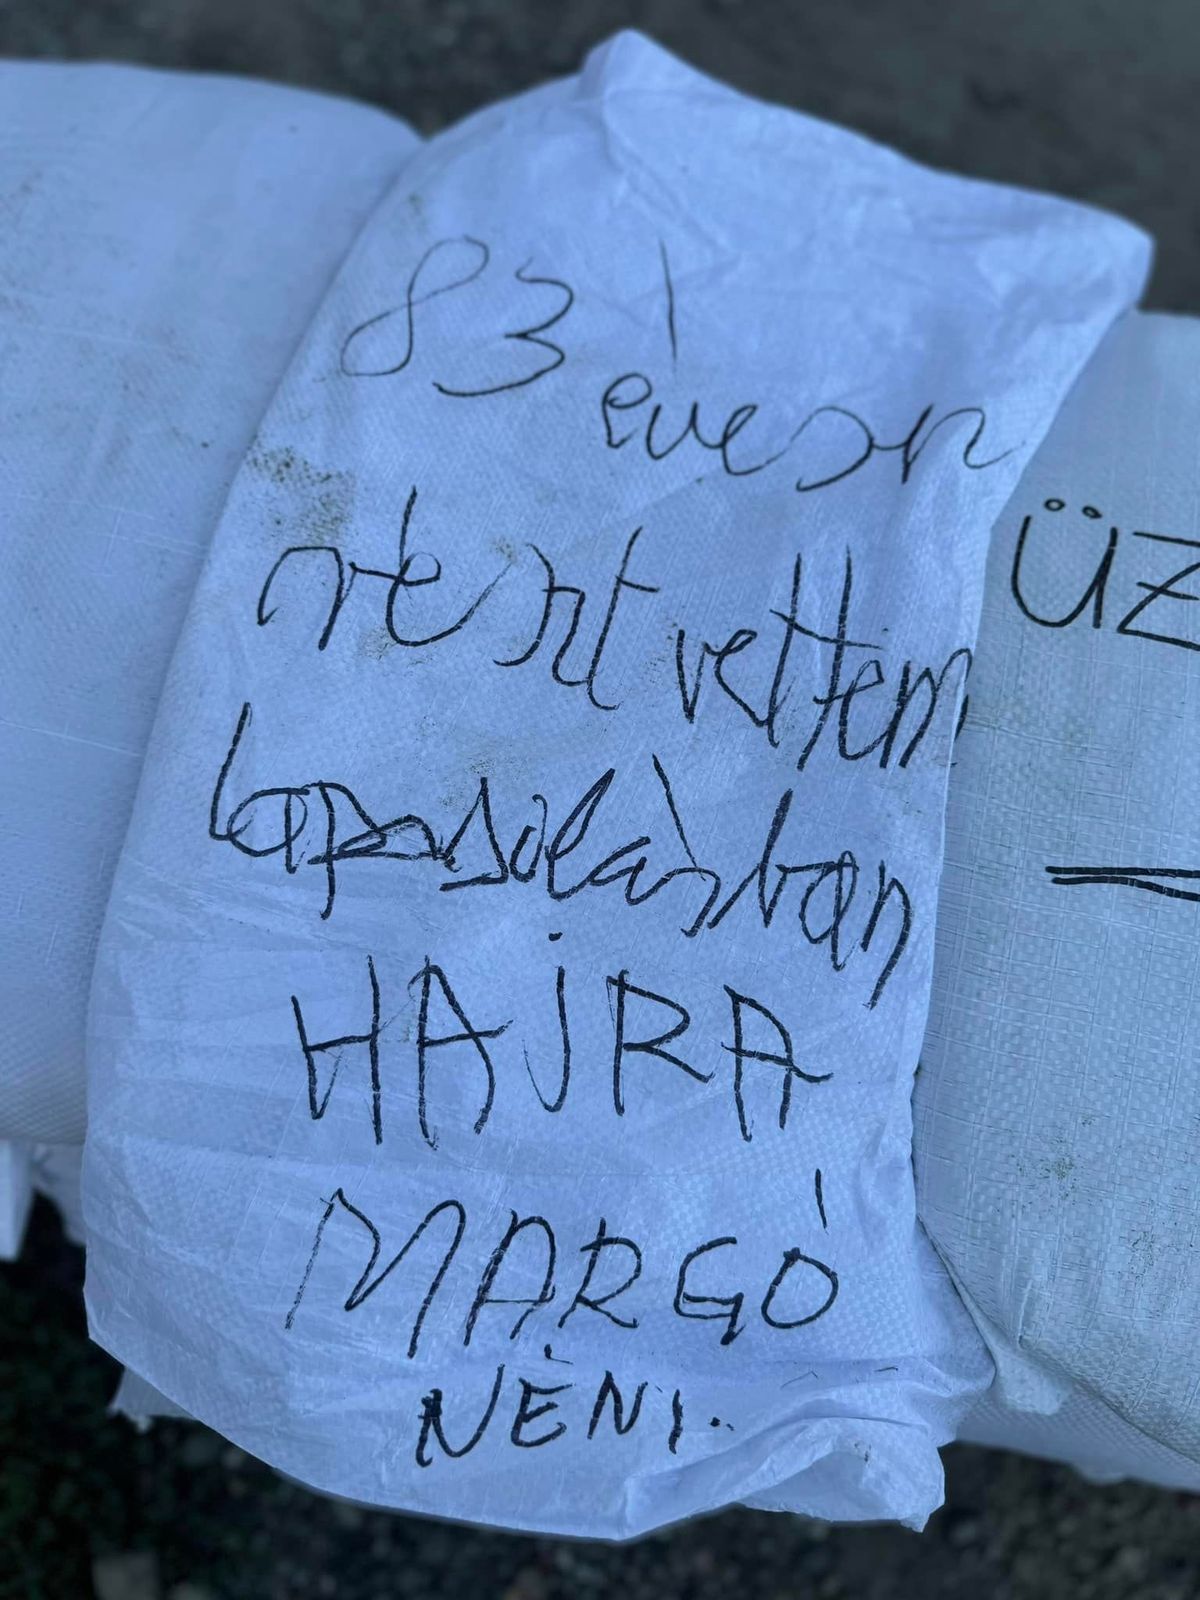 83 évesn
részt vettem
lapasolásban
HAJRA
MARGÓ
NÉNI.
ÜZ